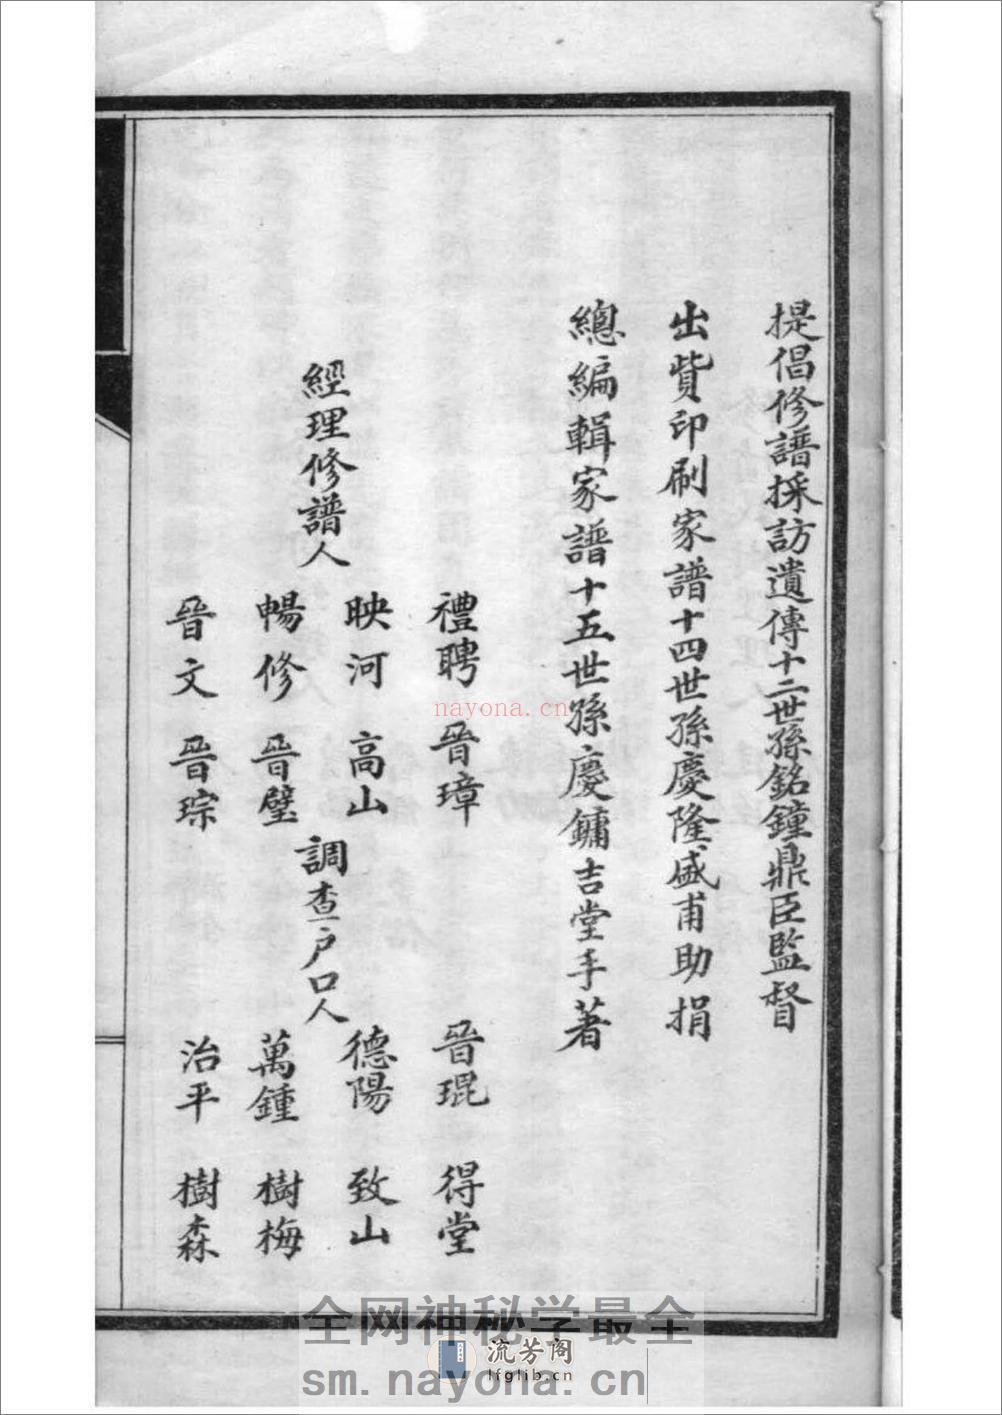 提倡修譜採訪遺傳十二世孫銘鐘鼎臣監督
出貲印刷家譜十四世孫慶隆盛甫助捐
總編輯家譜十五世孫慶鏞吉堂手著
經理修譜人
禮聘 晉璋
映河 高山
暢修 晉璧
晉文 晉琮
調查戶口人
晉琨 得堂
德陽 致山
萬鍾 樹梅
治平 樹森
nayona.cn
全网神秘学最全
流芳阁
lfglib.cn
sm.nayona.cn